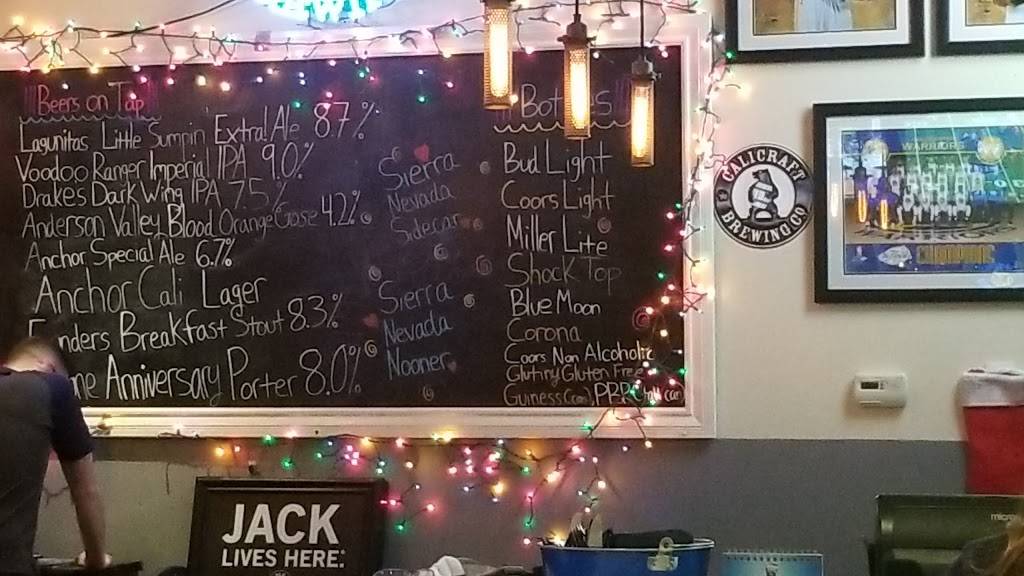 Beers on Tap
Lagunitas Little Sumpin Extra! Ale 8.7%
Voodoo Ranger Imperial IPA 9.0%
Drakes Dark Wing IPA 7.5%
Anderson Valley Blood Orange Gose 4.2%
Anchor Special Ale 6.7%
Anchor Cali Lager
nders Breakfast Stout 8.3%
ne Anniversary Porter 8.0%
Sierra
Nevada
Sidecar
Sierra
Nevada
Nooner
Bot es
Bud Light
Coors Light
Miller Lite
Shock Top
Blue Moon
Corona
Coors Non Alcoholic
Glutiny Gluten Free
Guiness (can), PBR
CALICRAFT
BREWING CO
WARRIORS
CHAMPIONS
JACK
LIVES HERE.